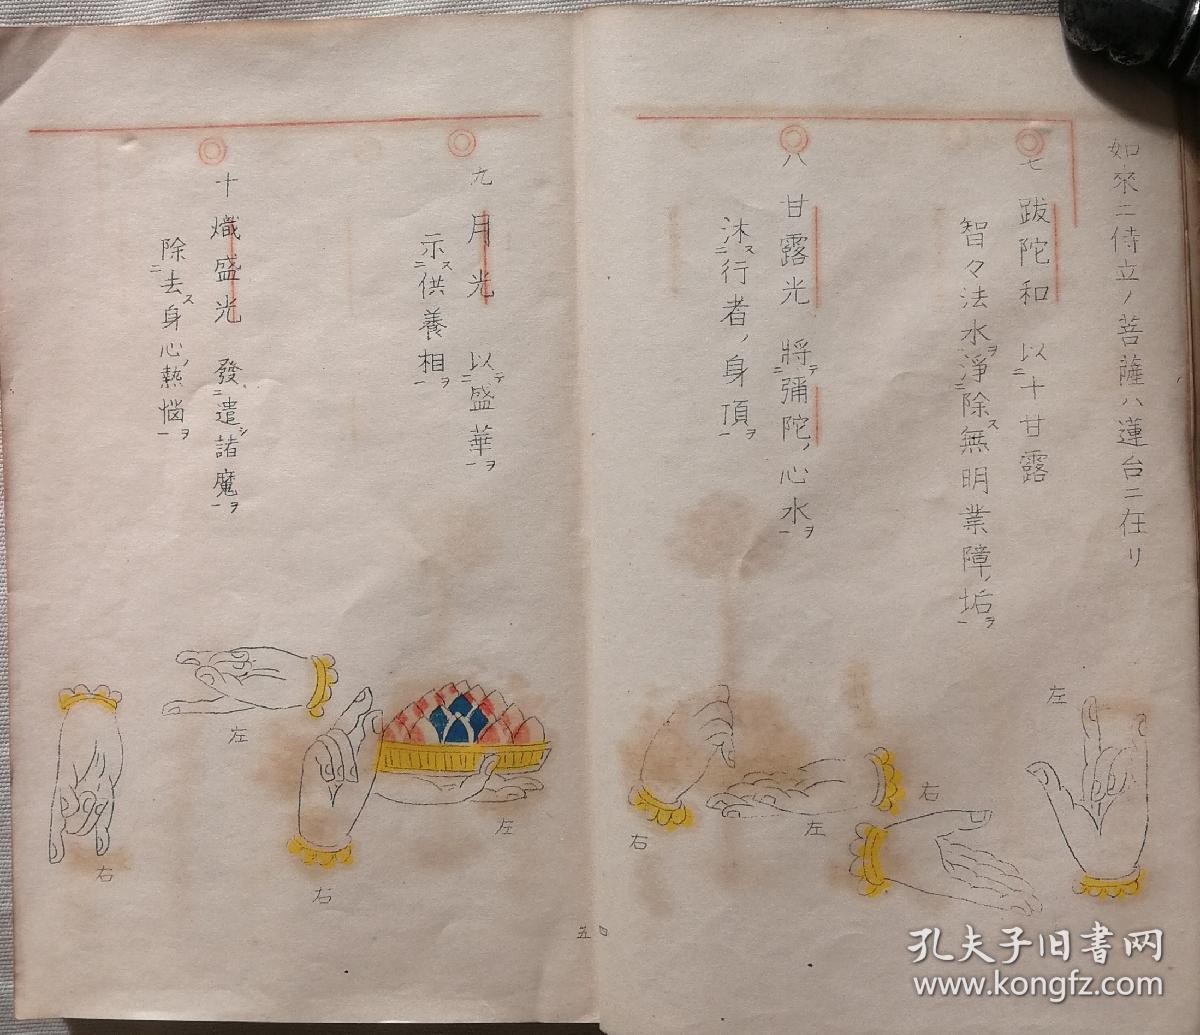 如來ニ侍立ノ菩薩ハ蓮台ニ在リ
七 跋陀和 以ニ十甘露
智々法水ヲ淨ニ除ス無明業障ノ垢ヲ一
八 甘露光 將テニ彌陀ノ心水ヲ一
沐スニ行者ノ身頂ヲ一
九 月光 以テニ盛華ヲ一
示スニ供養相ヲ一
十 熾盛光 發ニ遣シ諸魔ヲ一
除ニ去ス身心ノ熱惱ヲ一
左
右
左
右
左
右
左
右
四
五
孔夫子旧书网
www.kongfz.com